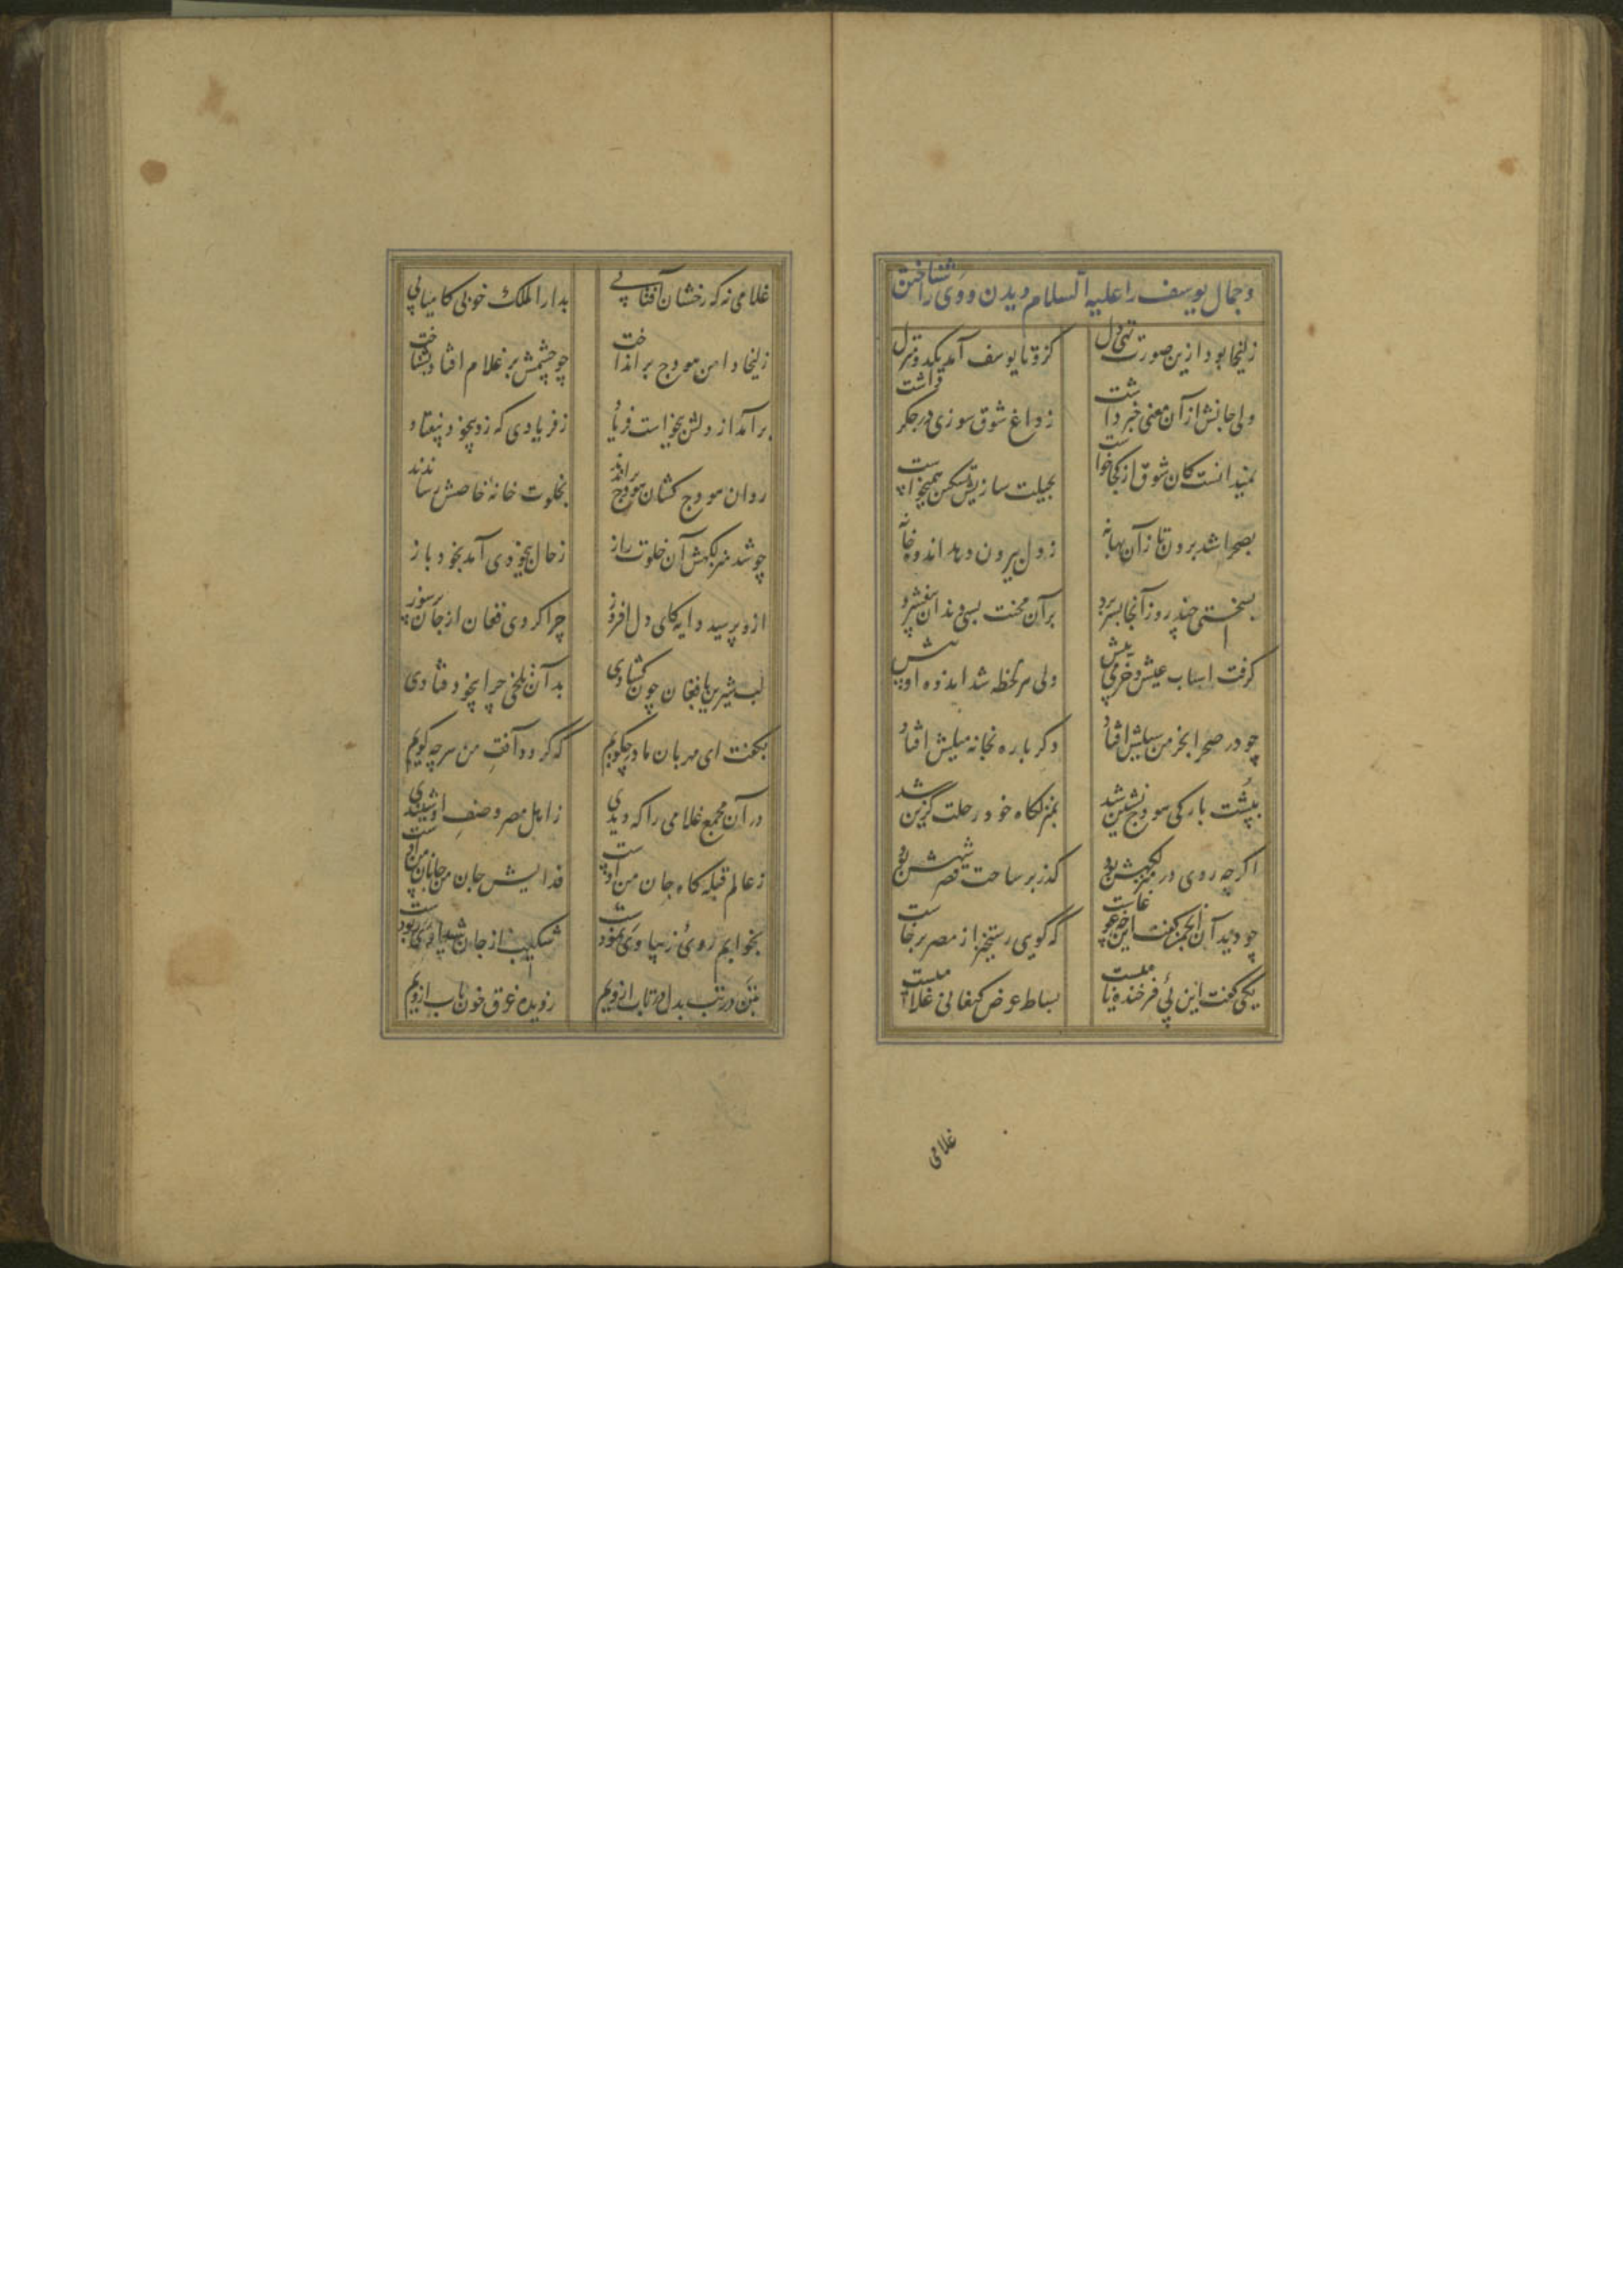 و جمال یوسف را علیه السلام دیدن و وی را شناختن
زلیخا بود ازین صورت تهی دل کزو تا یوسف آمد یکدو منزل
ولی جانش از آن معنی خبر داشت ز داغ شوق سوزی در جکر داشت
نمیدانست کان شوق از کجا خواست بحیلت سازیش تسکین همیخواست
بصحرا شد برون تا زان بهانه ز دل بیرون دهد اندوه خانه
بسختی چند روز آنجا بسر برد بر آن محنت بسی دندان بیفشرد
کرفت اسباب عیش و خرمی پیش ولی هر لحظه شد اندوه او بیش
چو در صحرا بخرمن سیلش افتاد دکر باره بخانه میلش افتاد
بپشت بارکی هودج نشین شد بمنزلکاه خود رحلت کزین شد
اکرچه روی در منزلکهش بود کذر بر ساحت قصر شهش بود
چو دید آن انجمن کفت این چه غوغاست که کویی رستخیز از مصر برخاست
یکی کفت این پئ فرخنده نامیست بساط عرض کنعانی غلامیست
غلامی
غلامی نه که رخشان آفتابی بدار الملک خوبی کامیابی
زلیخا دامن هودج برانداخت چو چشمش بر غلام افتاد بشناخت
برآمد از دلش بیخواست فریاد ز فریادی که زد بیخود بیفتاد
روان هودج کشان هودج براندند بخلوت خانهٔ خاصش رساندند
چو شد منزلکهش آن خلوت راز ز حال بیخودی آمد بخود باز
ازو پرسید دایه کای دل افروز چرا کردی فغان از جان پرسوز
لب شیرین بافغان چون کشادی بدان تلخی چرا بیخود فتادی
بکفت ای مهربان مادر چکویم که کردد آفت من هرچه کویم
در آن مجمع غلامی را که دیدی ز اهل مصر وصف او شنیدی
ز عالم قبله کاه جان من اوست فدایش جان من جانان من اوست
بخوابم روئ زیبا وی نمودست شکیب از جان شیدا وی ربودست
بتن در تب بدل در تاب ازویم ز دیده غرق خون ناب ازویم